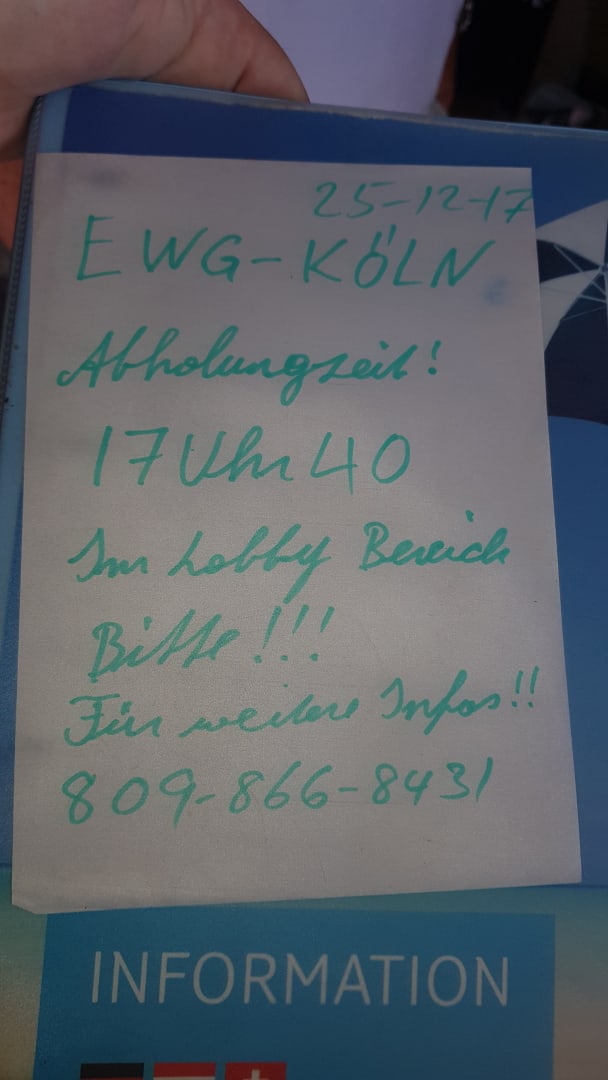 25-12-17
EWG-KÖLN
Abholungzeit!
17 Uhr 40
Im Lobby Bereich
Bitte!!!
Für weitere Infos!!
809-866-8431
INFORMATION